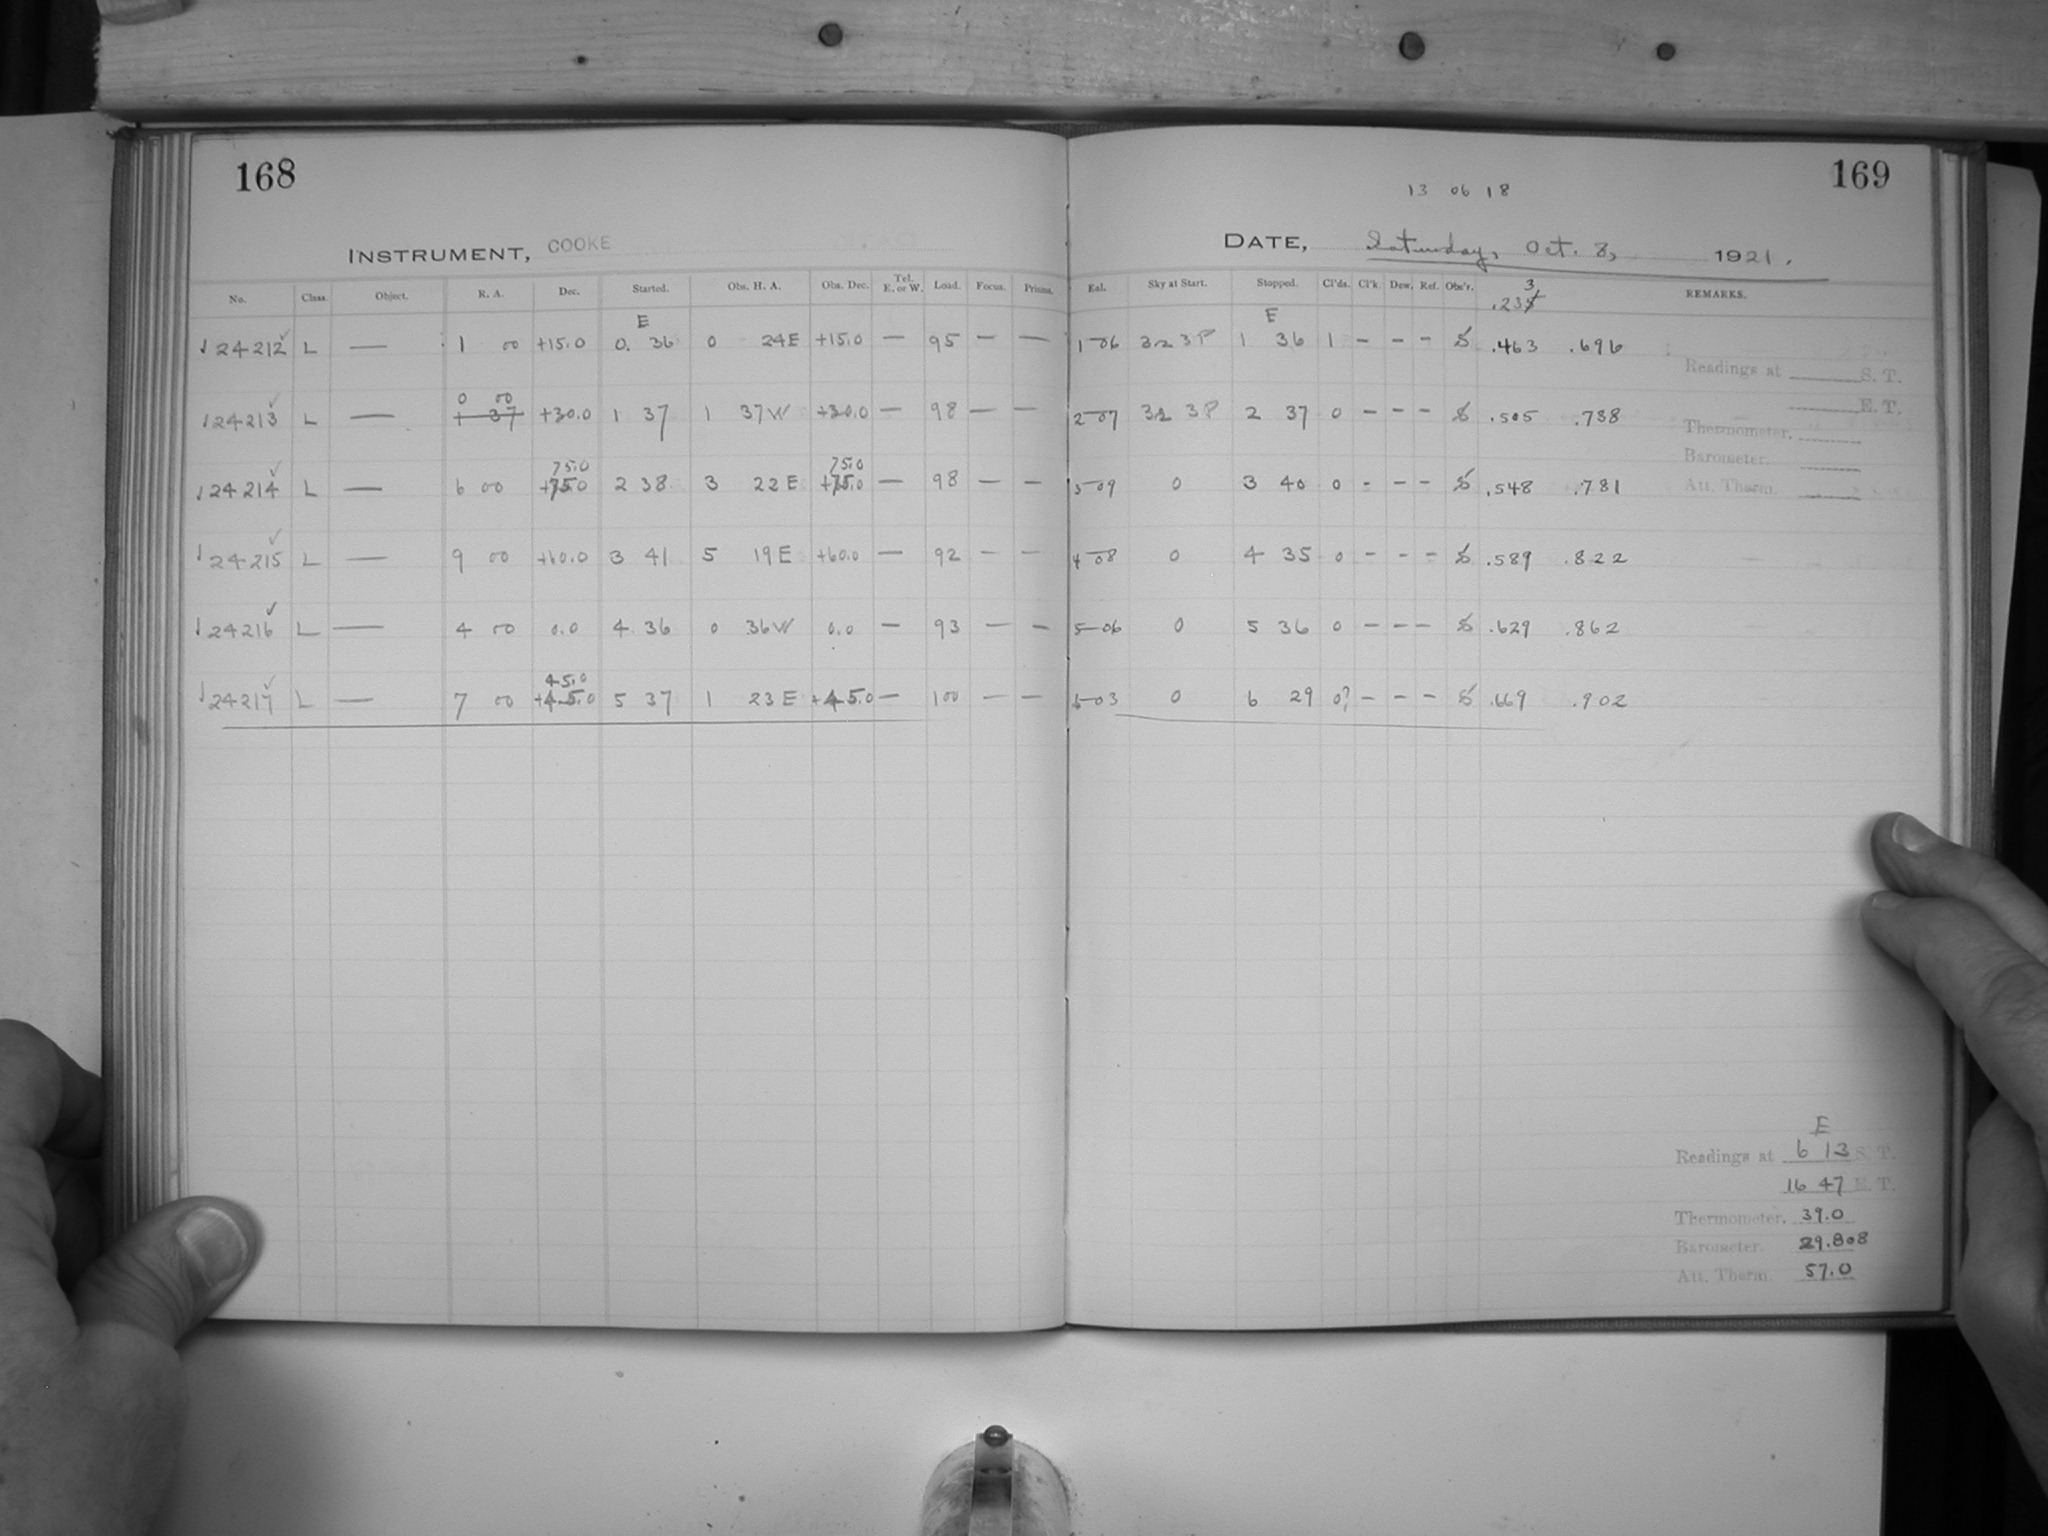 168
INSTRUMENT, COOKE
No. Class. Object. R. A. Dec. Started. Obs. H. A. Obs. Dec. Tel. E. or W. Load. Focus. Prisms.
E
24212 L — 1 00 +15.0 0. 36 0 24E +15.0 — 95 — —
0 00
24213 L — 1 37 +30.0 1 37 1 37W +30.0 — 98 — —
75.0 75.0
24214 L — 6 00 +75.0 2 38 3 22E +75.0 — 98 — —
24215 L — 9 00 +60.0 3 41 5 19E +60.0 — 92 — —
24216 L — 4 00 0.0 4 36 0 36W 0.0 — 93 — —
45.0
24217 L — 7 00 +45.0 5 37 1 23E +45.0 — 100 — —
169
13 06 18
DATE, Saturday, Oct. 8, 1921.
Eal. Sky at Start. Stopped. Cl'ds. Cl'k. Dew. Ref. Obs'r. REMARKS.
3
.23
E
1-06 3P 1 36 1 - - - .463 .696
2-07 3P 2 37 0 - - - .505 .738
3-09 0 3 40 0 - - - .548 .781
4-08 0 4 35 0 - - - .589 .822
5-06 0 5 36 0 - - - .629 .862
6-03 0 6 29 0? - - - .669 .902
Readings at S. T.
E. T.
Thermometer.
Barometer.
Att. Therm.
E
Readings at 6 13 S. T.
16 47 E. T.
Thermometer. 39.0
Barometer. 29.808
Att. Therm. 57.0